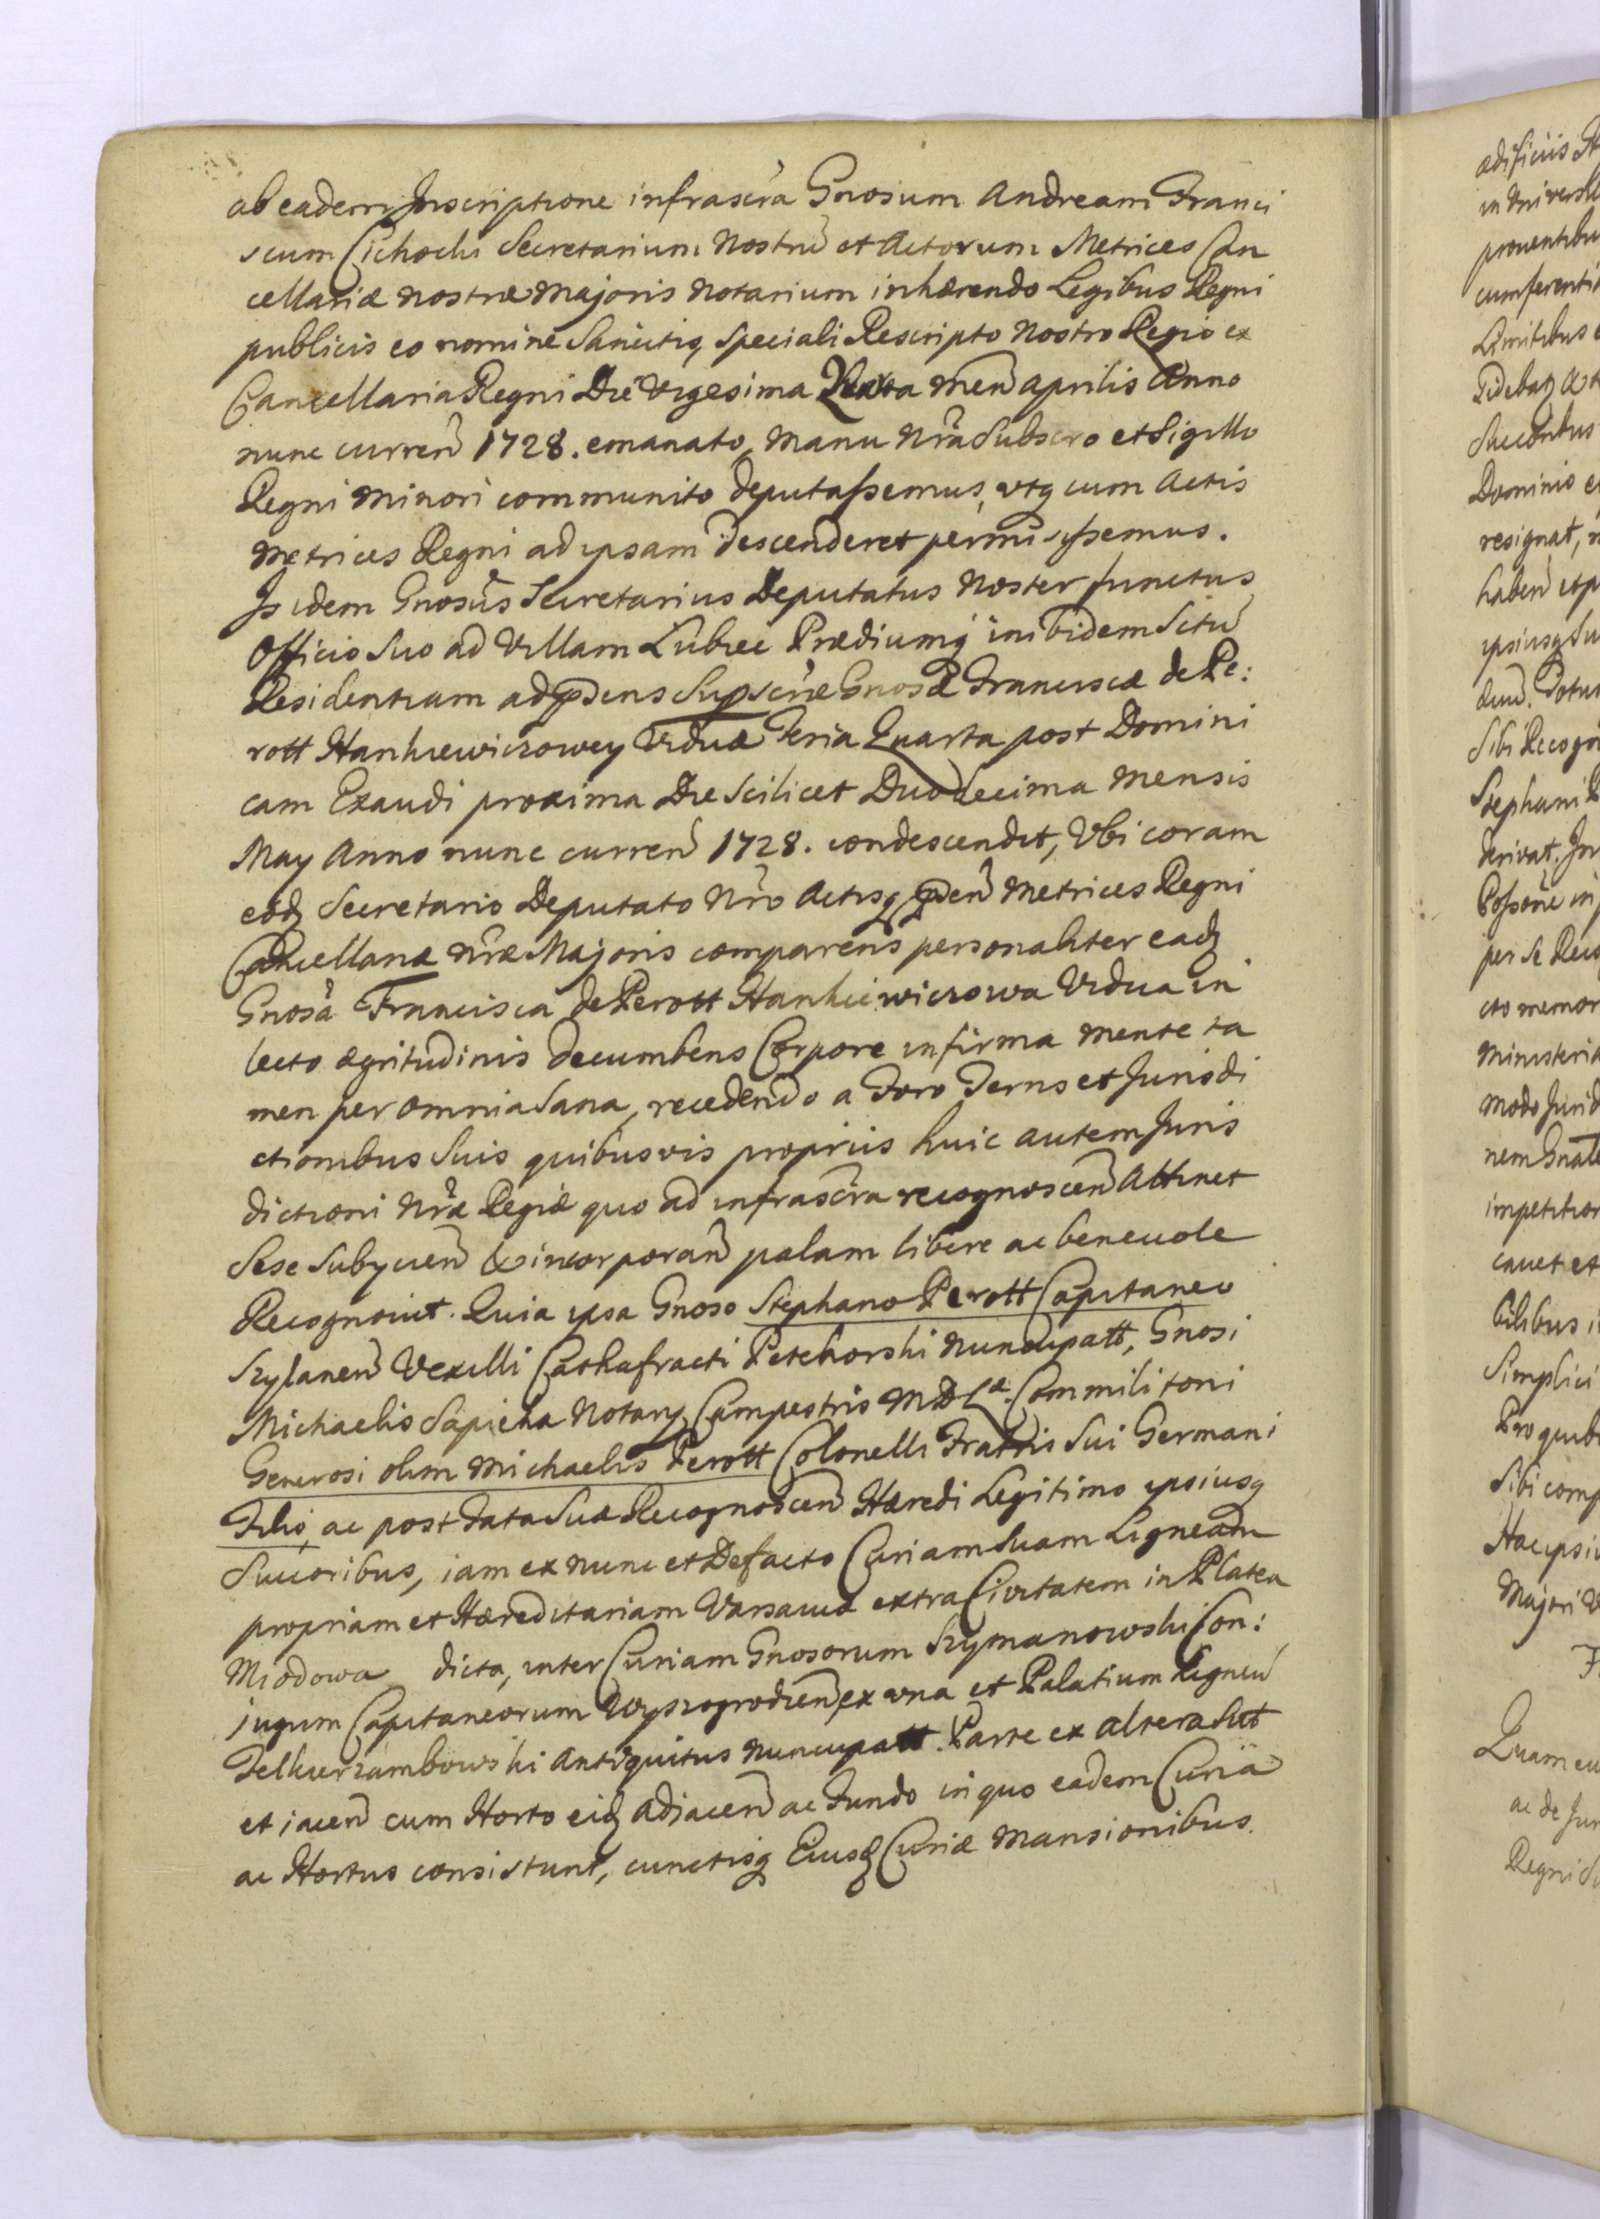 ab eadem Inscriptione infrascr̃a Gnosum Andream Franci
scum Cichocki Secretarium Nostrũ et Actorum Metrices Can
cellariæ nostræ Majoris Notarium inhærendo Legibus Regni
publicis eo nomine Sancitis, speciali Rescripto Nostro Regio ex
Cancellaria Regni Die Vigesima men̄ Aprilis Anno
nunc curren̄ 1728. emanato, manu Nr̃a Subscro et Sigillo
Regni Minori communito deputassemus, utq cum Actis
Metrices Regni ad ipsam descenderet permisissemus.
Is idem Gnosus Secretarius Deputatus Noster functus
Officio Suo ad Villam Lubiec Prædiumq inibidem Sitũ
Residentiam ad p̄dens Supscr̃æ Gnosæ Franciscæ de Pe:
rott Hankiewiczowey Viduæ Feria Quarta post Domini
cam Exaudi proxima Die Scilicet Duodecima Mensis
May Anno nunc curren̄ 1728. condescendit, Ubi coram
eodq Secretario Deputato Nr̃o Actisq p̄sen̄ Metrices Regni
Cancellariæ Nr̃æ Majoris comparens personaliter eadq
Gnosa Francisca de Perott Hankiewiczowa Vidua in
lecto ægritudinis decumbens Corpore infirma mente ta
men per omnia Sana, recedendo a Foro Terris et Jurisdi
ctionibus Suis quibusvis propriis huic autem Juris
dictioni Nr̃æ Regiæ quo ad infrascr̃a recognoscen̄ Attinet
Sese Subijcien̄ & incorporan̄ palam libere ac benevole
Recognovit. Quia ipsa Gnoso Stephano Perott Capitaneo
Szylanen̄ Vexilli Cathafracti Petehorski Nuncupatt, Gnosi
Michaelis Sapieha Notary Campestris M D Læ Commilitoni
Generosi olim Michaelis Perott Colonelli Fratris Sui Germani
Filio, ac post Fata Sua Recognoscen̄ Hæredi Legitimo ipsiusq
Succoribus, iam ex nunc et Defacto Curiam Suam Ligneam
propriam et Hæreditariam Varsaviæ extra Civitatem in Platea
Miodowa dicta, inter Curiam Gnosorum Szymanowski Con:
jugum Capitaneorum Wyszogrodien̄, ex una et Palatium Ligneũ
Antiquitus Nuncupatt. Parte ex altera Sit
et iacen̄ cum Horto eidq Adiacen̄ ac Fundo in quo eadem Curia
ac Hortus consistunt, cunctisq Eiusdq Curiæ Mansionibus.
ædificiis
in Universū
proventibu
cumferentiis
Limitibus
Dominio
resignat,
Sibi Recogn
Stephani P
derivat. In
per Se Reco
cto memor
Ministeria
Modo Jurid
impetition
cavet et
Simplici
Pro quib
Sibi comp
Hac ipsi
Majori
Quam
ac de Jur
Regni